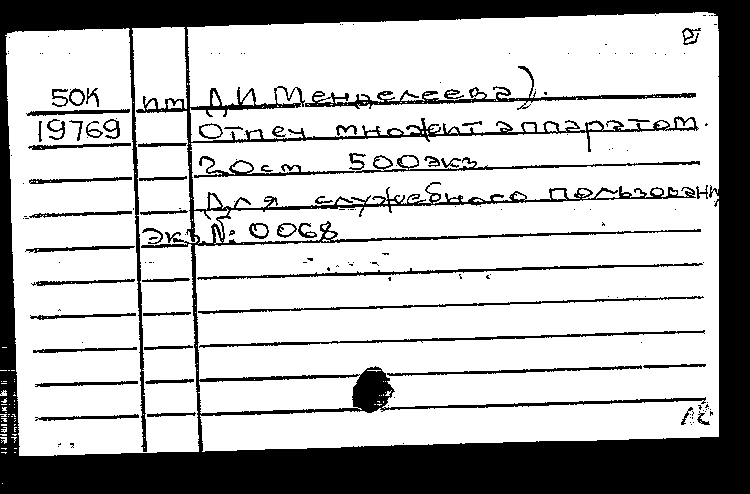 50К им Д.И.Менделеева).
19769 Отпеч. множит аппаратом.
20 ст 500экз.
Для служебного пользован
экз. №: 0068